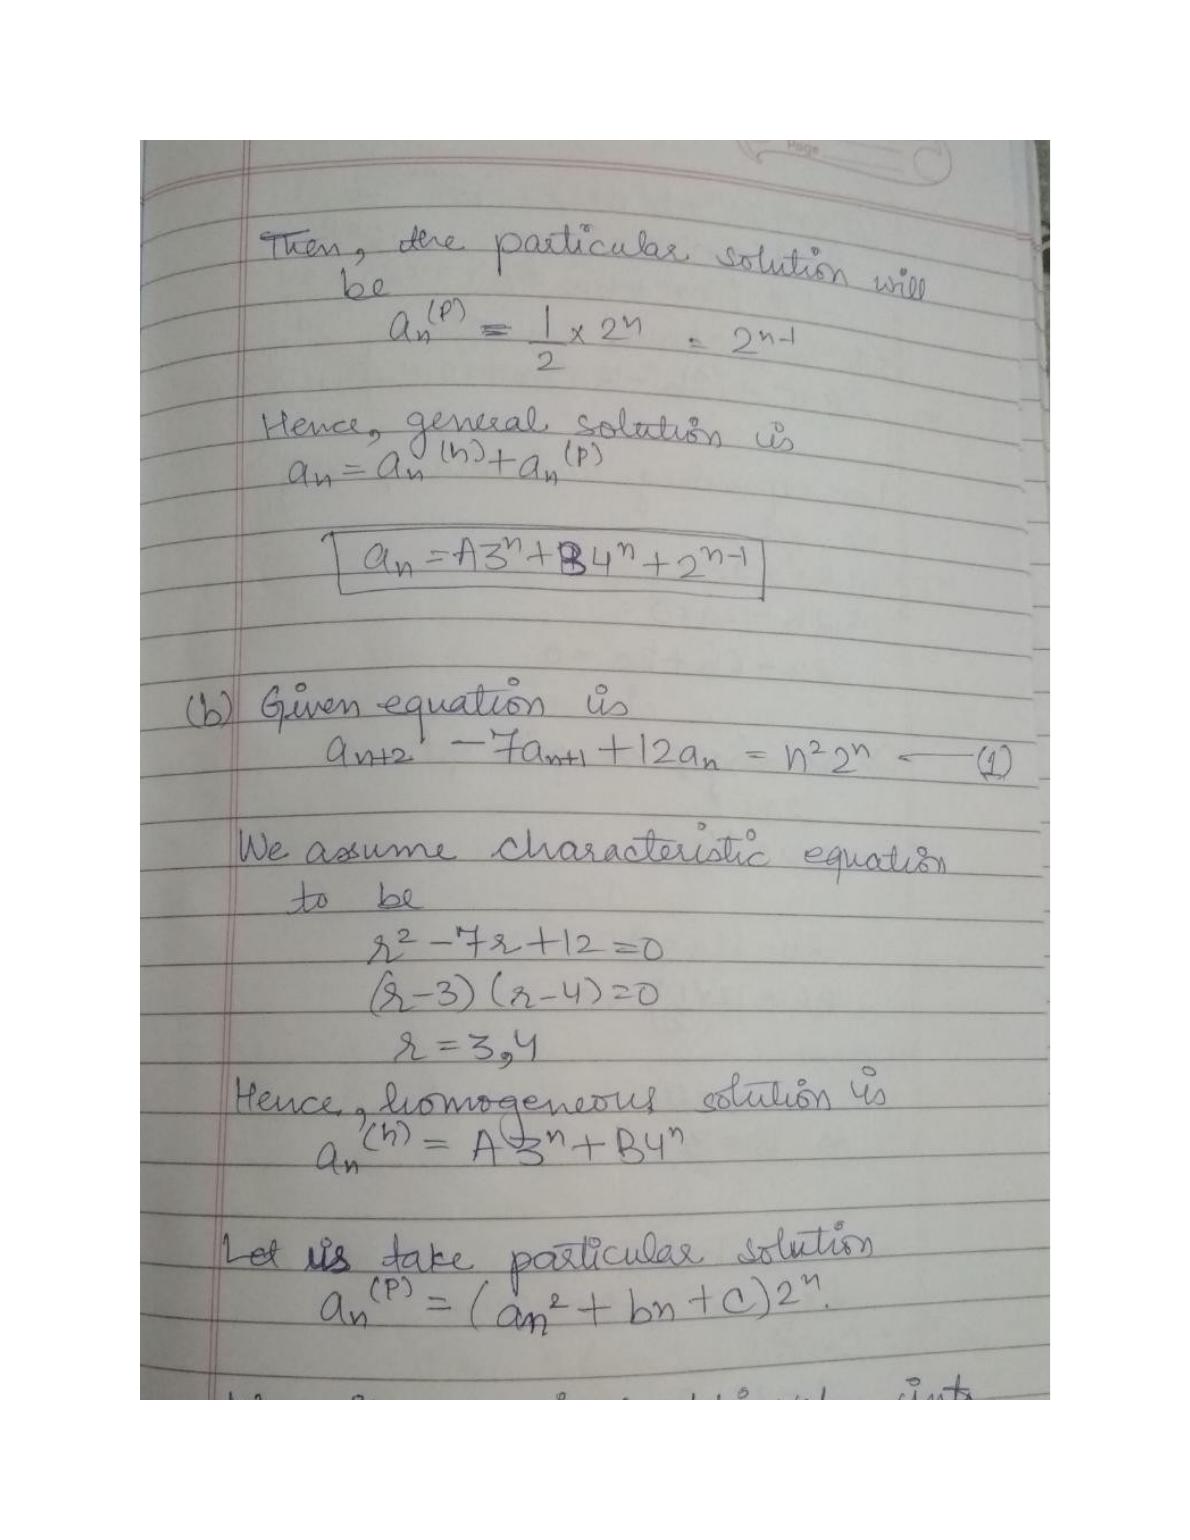 Page
Then, the particular solution will
be
aₙ⁽ᵖ⁾ = 1/2 × 2ⁿ = 2ⁿ⁻¹
Hence, general solution is
aₙ = aₙ⁽ʰ⁾ + aₙ⁽ᵖ⁾
aₙ = A3ⁿ + B4ⁿ + 2ⁿ⁻¹
(b) Given equation is
aₙ₊₂ - 7aₙ₊₁ + 12aₙ = n²2ⁿ — (1)
We assume characteristic equation
to be
r² - 7r + 12 = 0
(r-3) (r-4) = 0
r = 3, 4
Hence, homogeneous solution is
aₙ⁽ʰ⁾ = A3ⁿ + B4ⁿ
Let us take particular solution
aₙ⁽ᵖ⁾ = (an² + bn + c)2ⁿ.